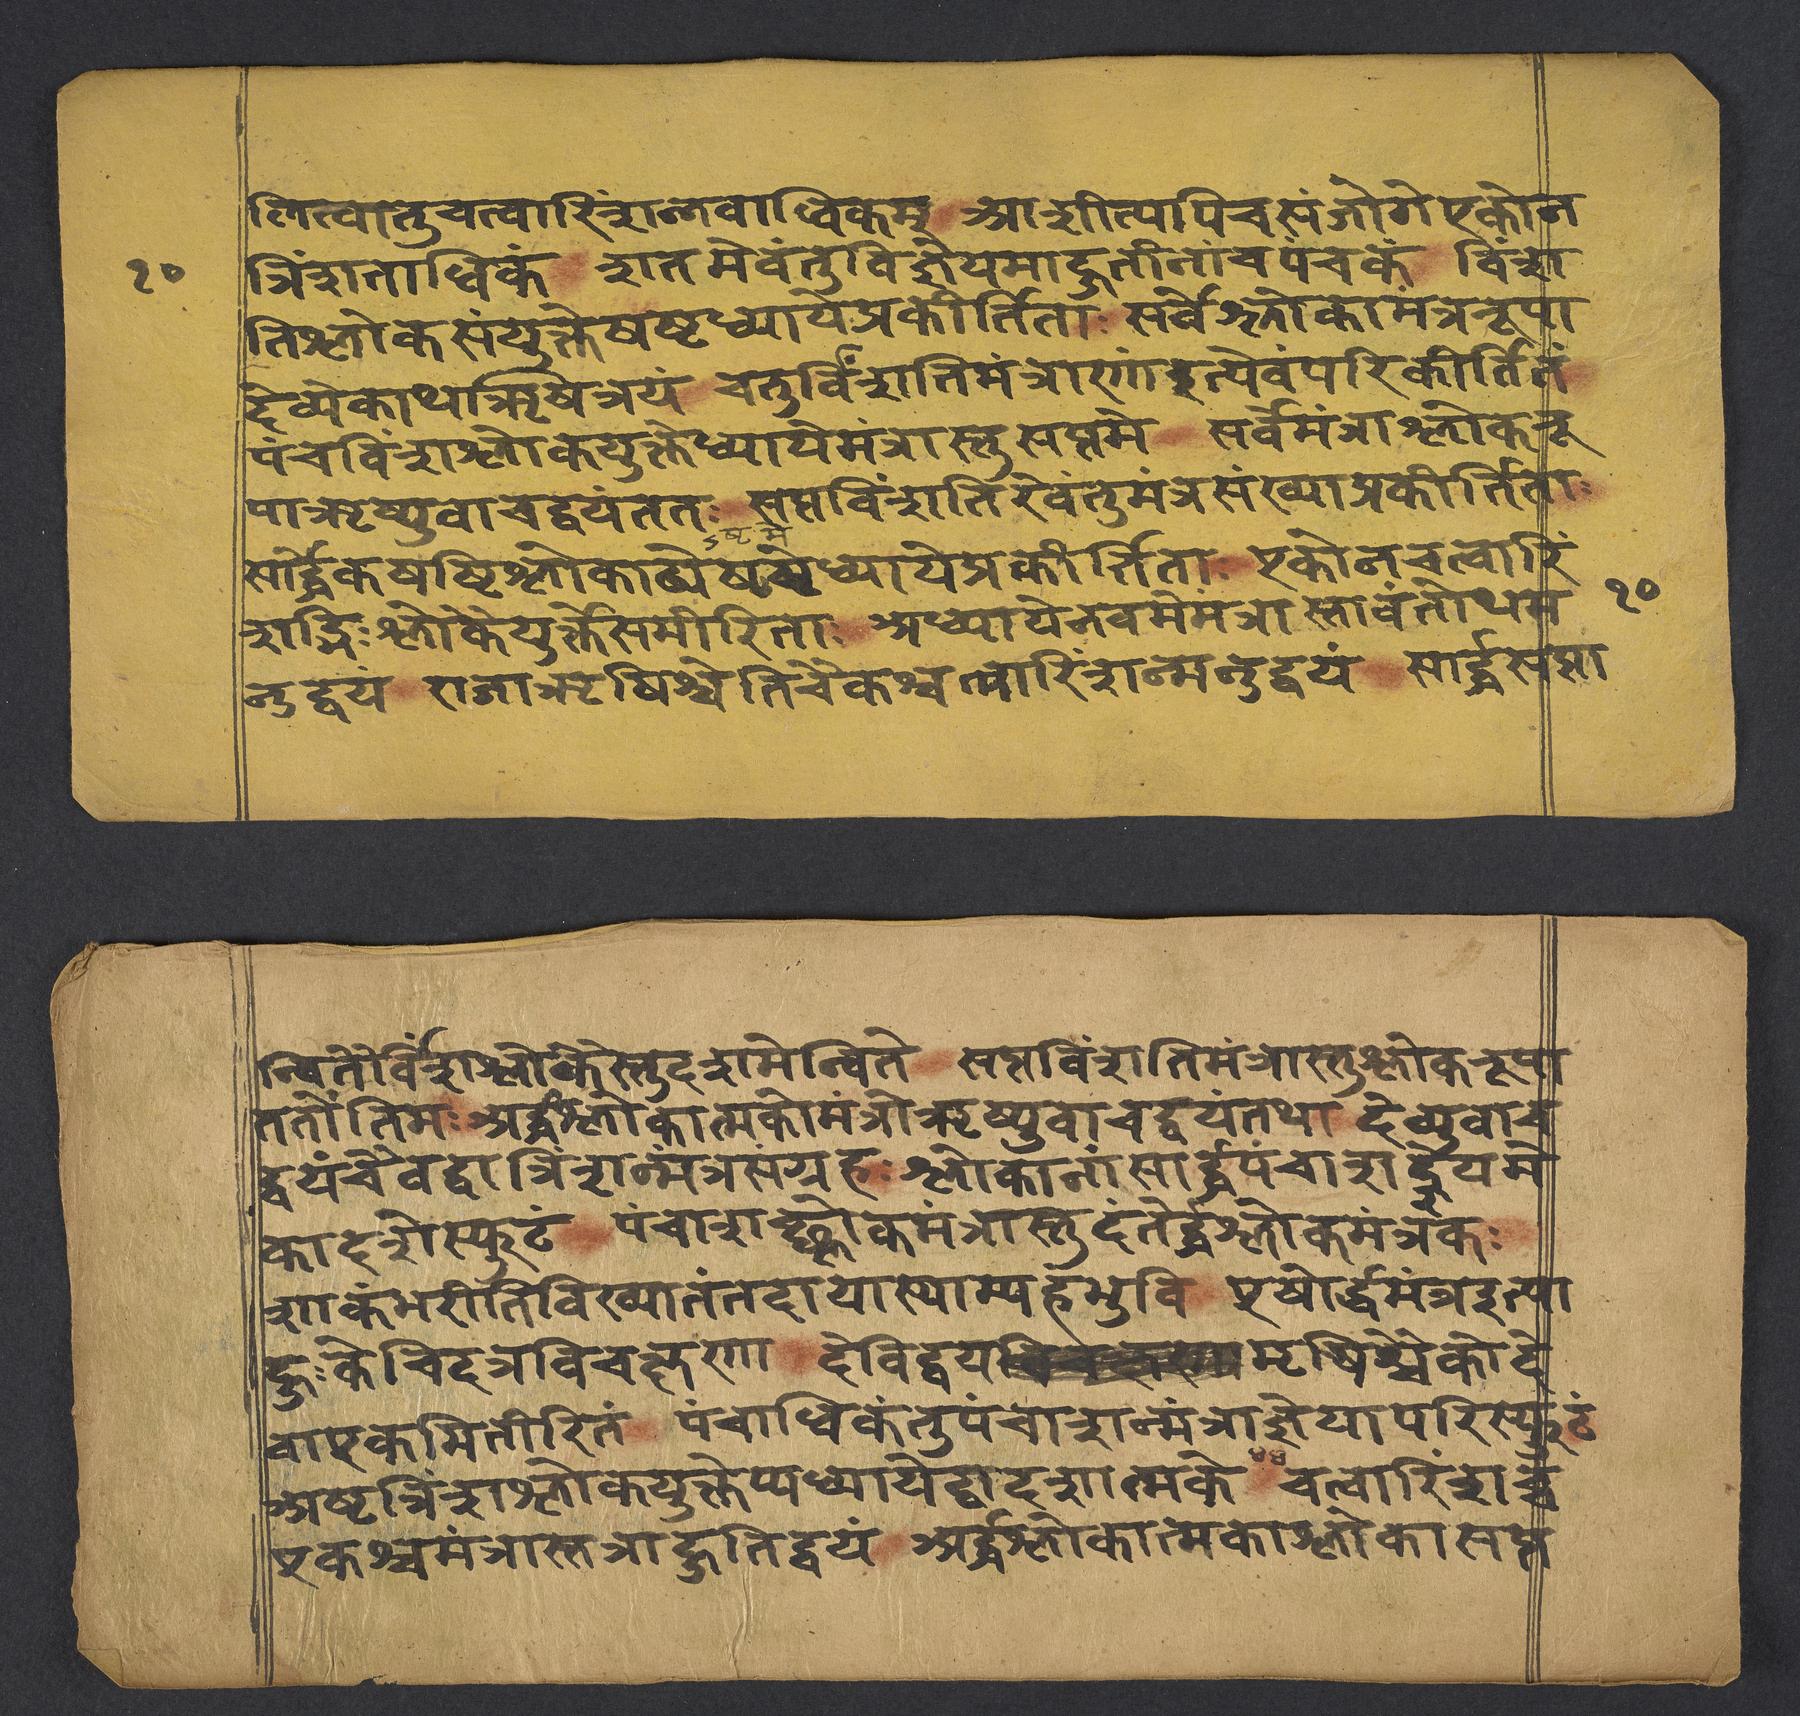 लित्वातुचत्वारिंशन्नवाधिकम् आशीत्यापिचसंजोगेएकोन
१० त्रिंशताधिकं शतमेवंतुविज्ञेयमाहुतीनांचपंचकं विंश
तिश्लोकसंयुक्तेषष्टध्यायेप्रकीर्तिताः सर्वेश्लोकामंत्ररूपा
देव्येकाथऋषित्रयं चतुर्विंशतिमंत्राणांइत्येवंपरिकीर्तितं
पंचविंशश्लोकयुक्तेध्यायेमंत्रास्तुसप्तमे सर्वेमंत्राश्लोकरू
पाऋष्युवाचद्वयंततः सप्तविंशतिरेवंतुमंत्रसंख्याप्रकीर्तिताः
ऽष्टमे
सार्द्धैकषष्टिश्लोकाढ्येध्यायेप्रकीर्तिताः एकोनचत्वारिं
शद्भिःश्लोकैर्युक्तेसमीरिताः अध्यायेनवमेमंत्रास्तावंतोथम १०
नुद्वयं राजाऋषिश्चेतिचैकश्चत्वारिंशन्मनुद्वयं सार्द्धसप्ता
न्वितेर्विंशश्लोकैस्तुदशमेन्विते सप्तविंशतिमंत्रास्तुश्लोकरूपा
ततोंतिमः अर्द्धश्लोकात्मकोमंत्रोऋष्युवाचद्वयंतथा देव्युवाच
द्वयंचैवद्वात्रिंशन्मंत्रसंग्रहः श्लोकानांसार्द्धपंचाशद्ज्ञेयमे
कादशेस्फुटं पंचाशच्छ्लोकमंत्रास्तुदंतेर्द्धश्लोकमंत्रकः
शाकंभरीतिविख्यातंतदायास्याम्यहंभुवि एषोर्द्धमंत्रइत्या
हुःकेचिदत्रविचक्षणा देविद्वयमृषिश्चैकोदे
वाएकमितीरितं पंचाधिकंतुपंचाशन्मंत्राज्ञेयापरिस्फुटं
४१
अष्टत्रिंशश्लोकयुक्तेप्यध्यायेद्वादशात्मके चत्वारिंशच्च
एकश्चमंत्रास्तत्राहुतिद्वयं अर्द्धश्लोकात्मकाश्लोकासप्त